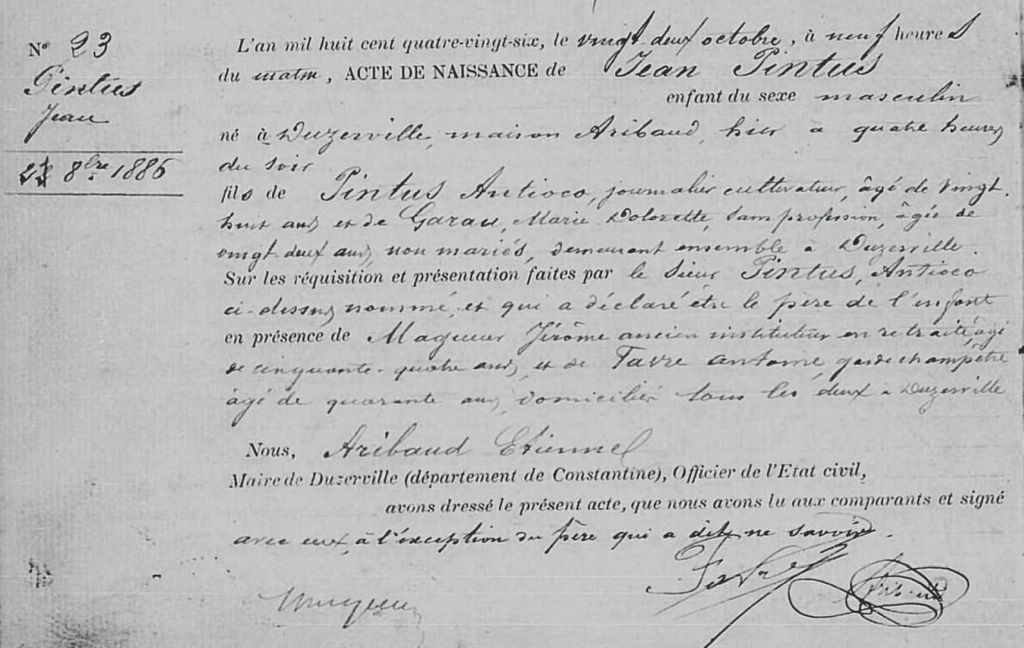 N° 23
Pintus
Jean
8bre 1886
L'an mil huit cent quatre-vingt-six, le vingt deux octobre, à neuf heures
du matin, ACTE DE NAISSANCE de Jean Pintus
enfant du sexe masculin
né à Duzerville, maison Aribaud, hier à quatre heures
du soir
fils de Pintus Antioco, journalier cultivateur, âgé de vingt
huit ans et de Garau, Marie Dolorette, sans profession, âgée de
vingt deux ans, non mariés, demeurant ensemble à Duzerville.
Sur les réquisition et présentation faites par le Sieur Pintus, Antioco
ci-dessus nommé et qui a déclaré être le père de l'enfant
en présence de Maqueur Jérôme ancien instituteur en retraite, âgé
de cinquante-quatre ans, et de Favre antoine, garde champêtre
âgé de quarante ans, domiciliés tous les deux à Duzerville
Nous, Aribaud Etienne
Maire de Duzerville (département de Constantine), Officier de l'Etat civil,
avons dressé le présent acte, que nous avons lu aux comparants et signé
avec eux, à l'exception du père qui a dit ne savoir.
Favre